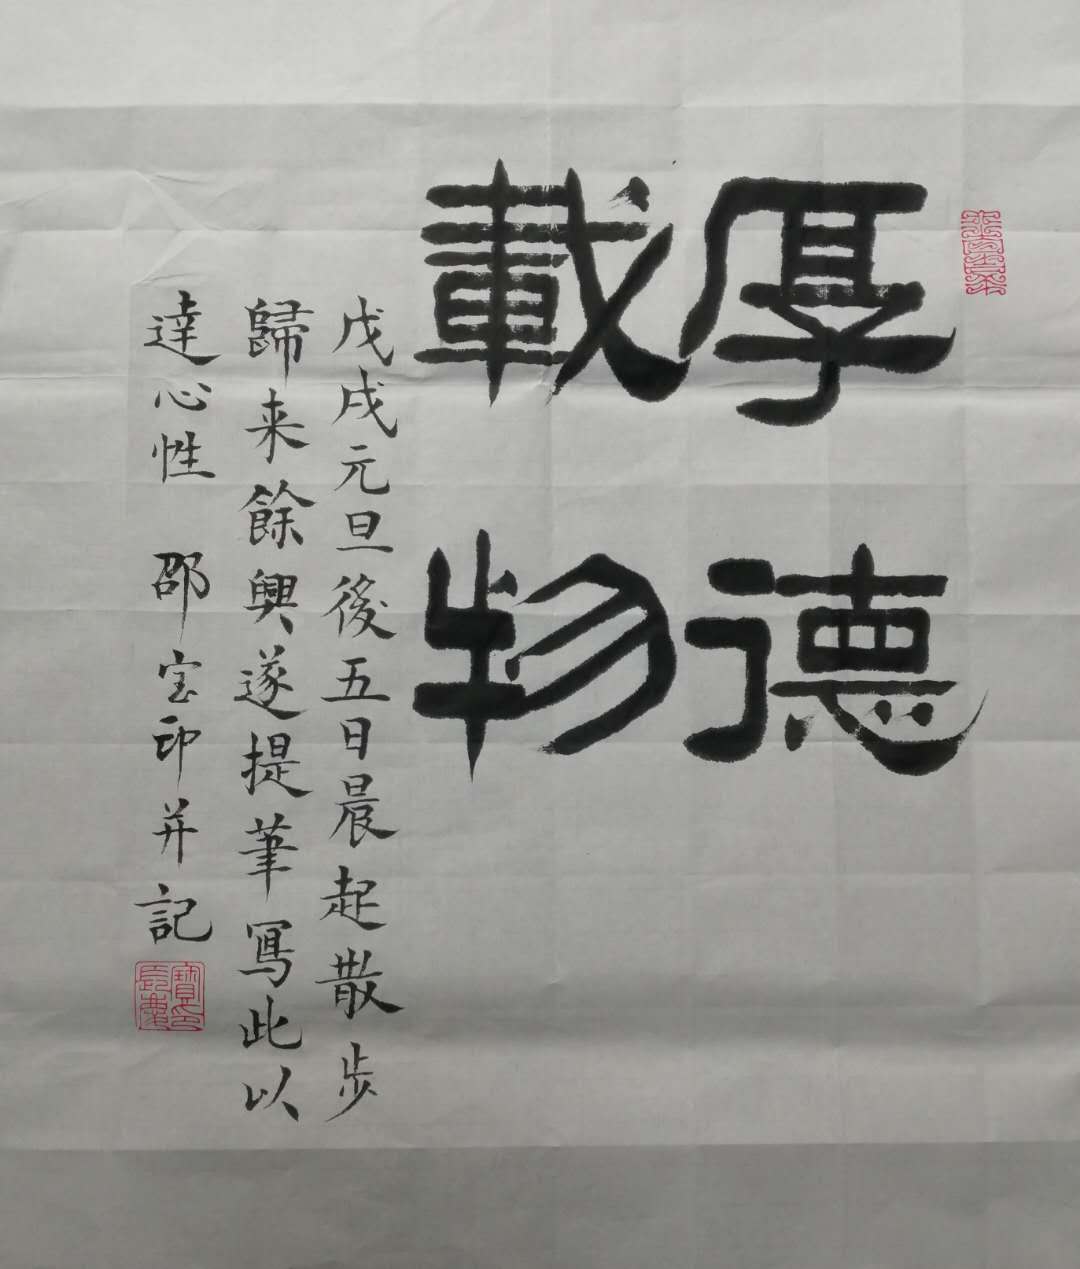 厚德
載物
戊戌元旦後五日晨起散步
歸来餘興遂提筆寫此以
達心性 邵宝印并記